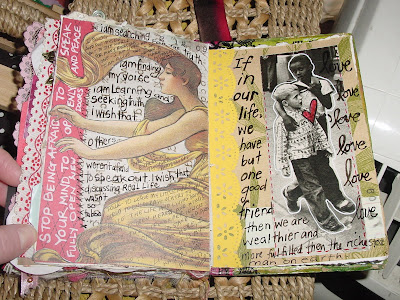 SPEAK
AND PEACE
STOP BEING AFRAID TO
YOUR MIND TO OP
FULLY OPEN
i am searching
i am finding
my voice
i am learning and
seeking truth
i wish that
others
weren't afraid
to speak out. I wish that
discussing Real Life
wasn't
so
taboo
If
in
our
life,
we
have
but
one
good
friend
then we are
wealthier and
more fulfilled then the richest
man on earth
love
love
love
love
love
love